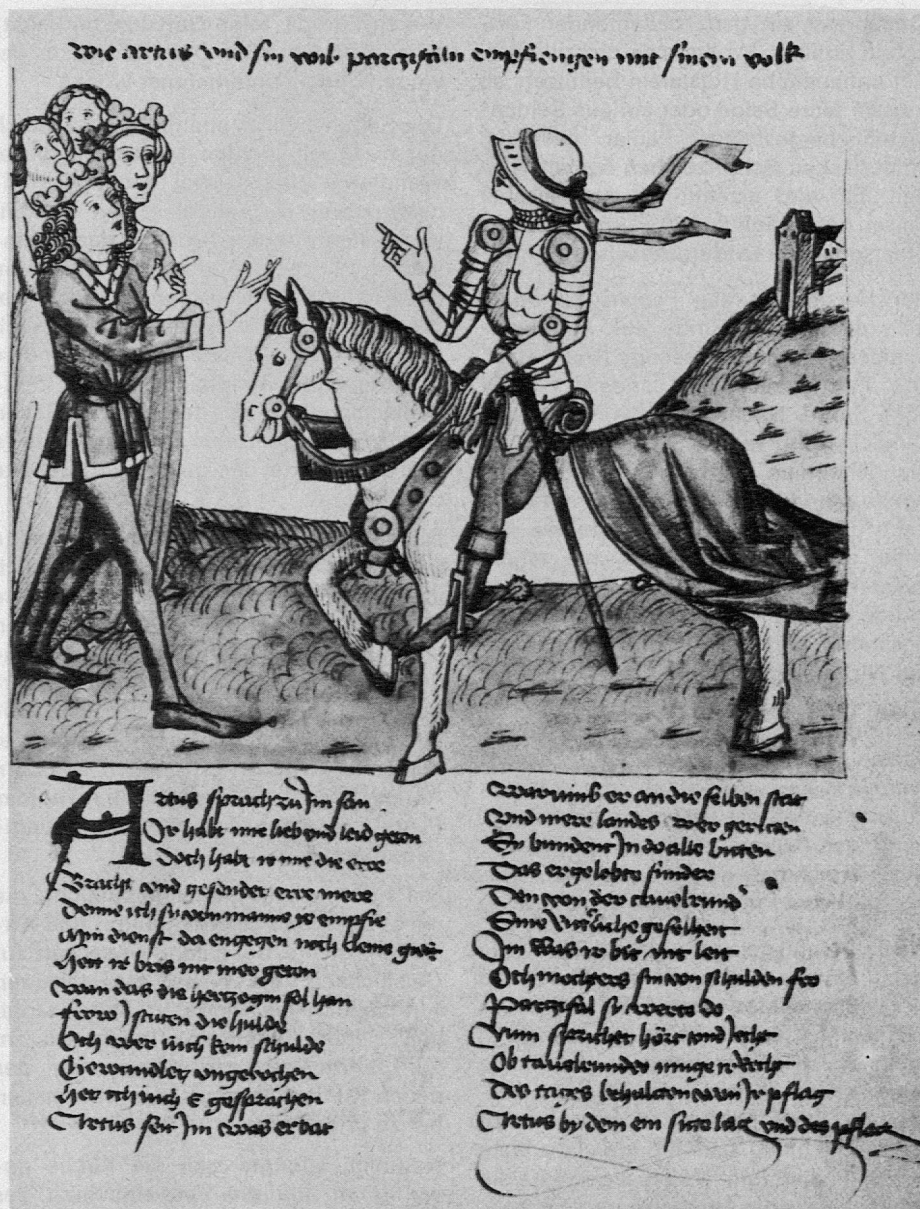 wie artus vnd sin wib partzifaln empfiengen mit sinem volk
Artus sprach zů Im san
Ir habt mir lieb vnd leid geton
Doch habt ir mir die erre
Bracht vnd gesendet erre mere
Denne ich sy von manne ye empfie
Min dienst da engegen noch kleine
Hett ir bris nit mer geton
wan das die hertzogin sol han
frow Jscuten die hulde
Och wer üch kein schulde
vngerochen
Het ich üch E gesprochen
Artus seit Jm was erbat
warumb er an die selben stat
Vnd mere landes wer geritten
Sy bundent Jn do alle bitten
Das er gelobte sunder
Den von der tauelrund
Sine geselheit
Im was ir bit nit leit
Och mochters sin von schulden fro
Partzifal sy werte do
Nun sprichet hört vnd
Ob tauelrunder muge ir recht
Des tages behalten wan Jr pflag
Artus by dem ein sitte lag vnd des pflag